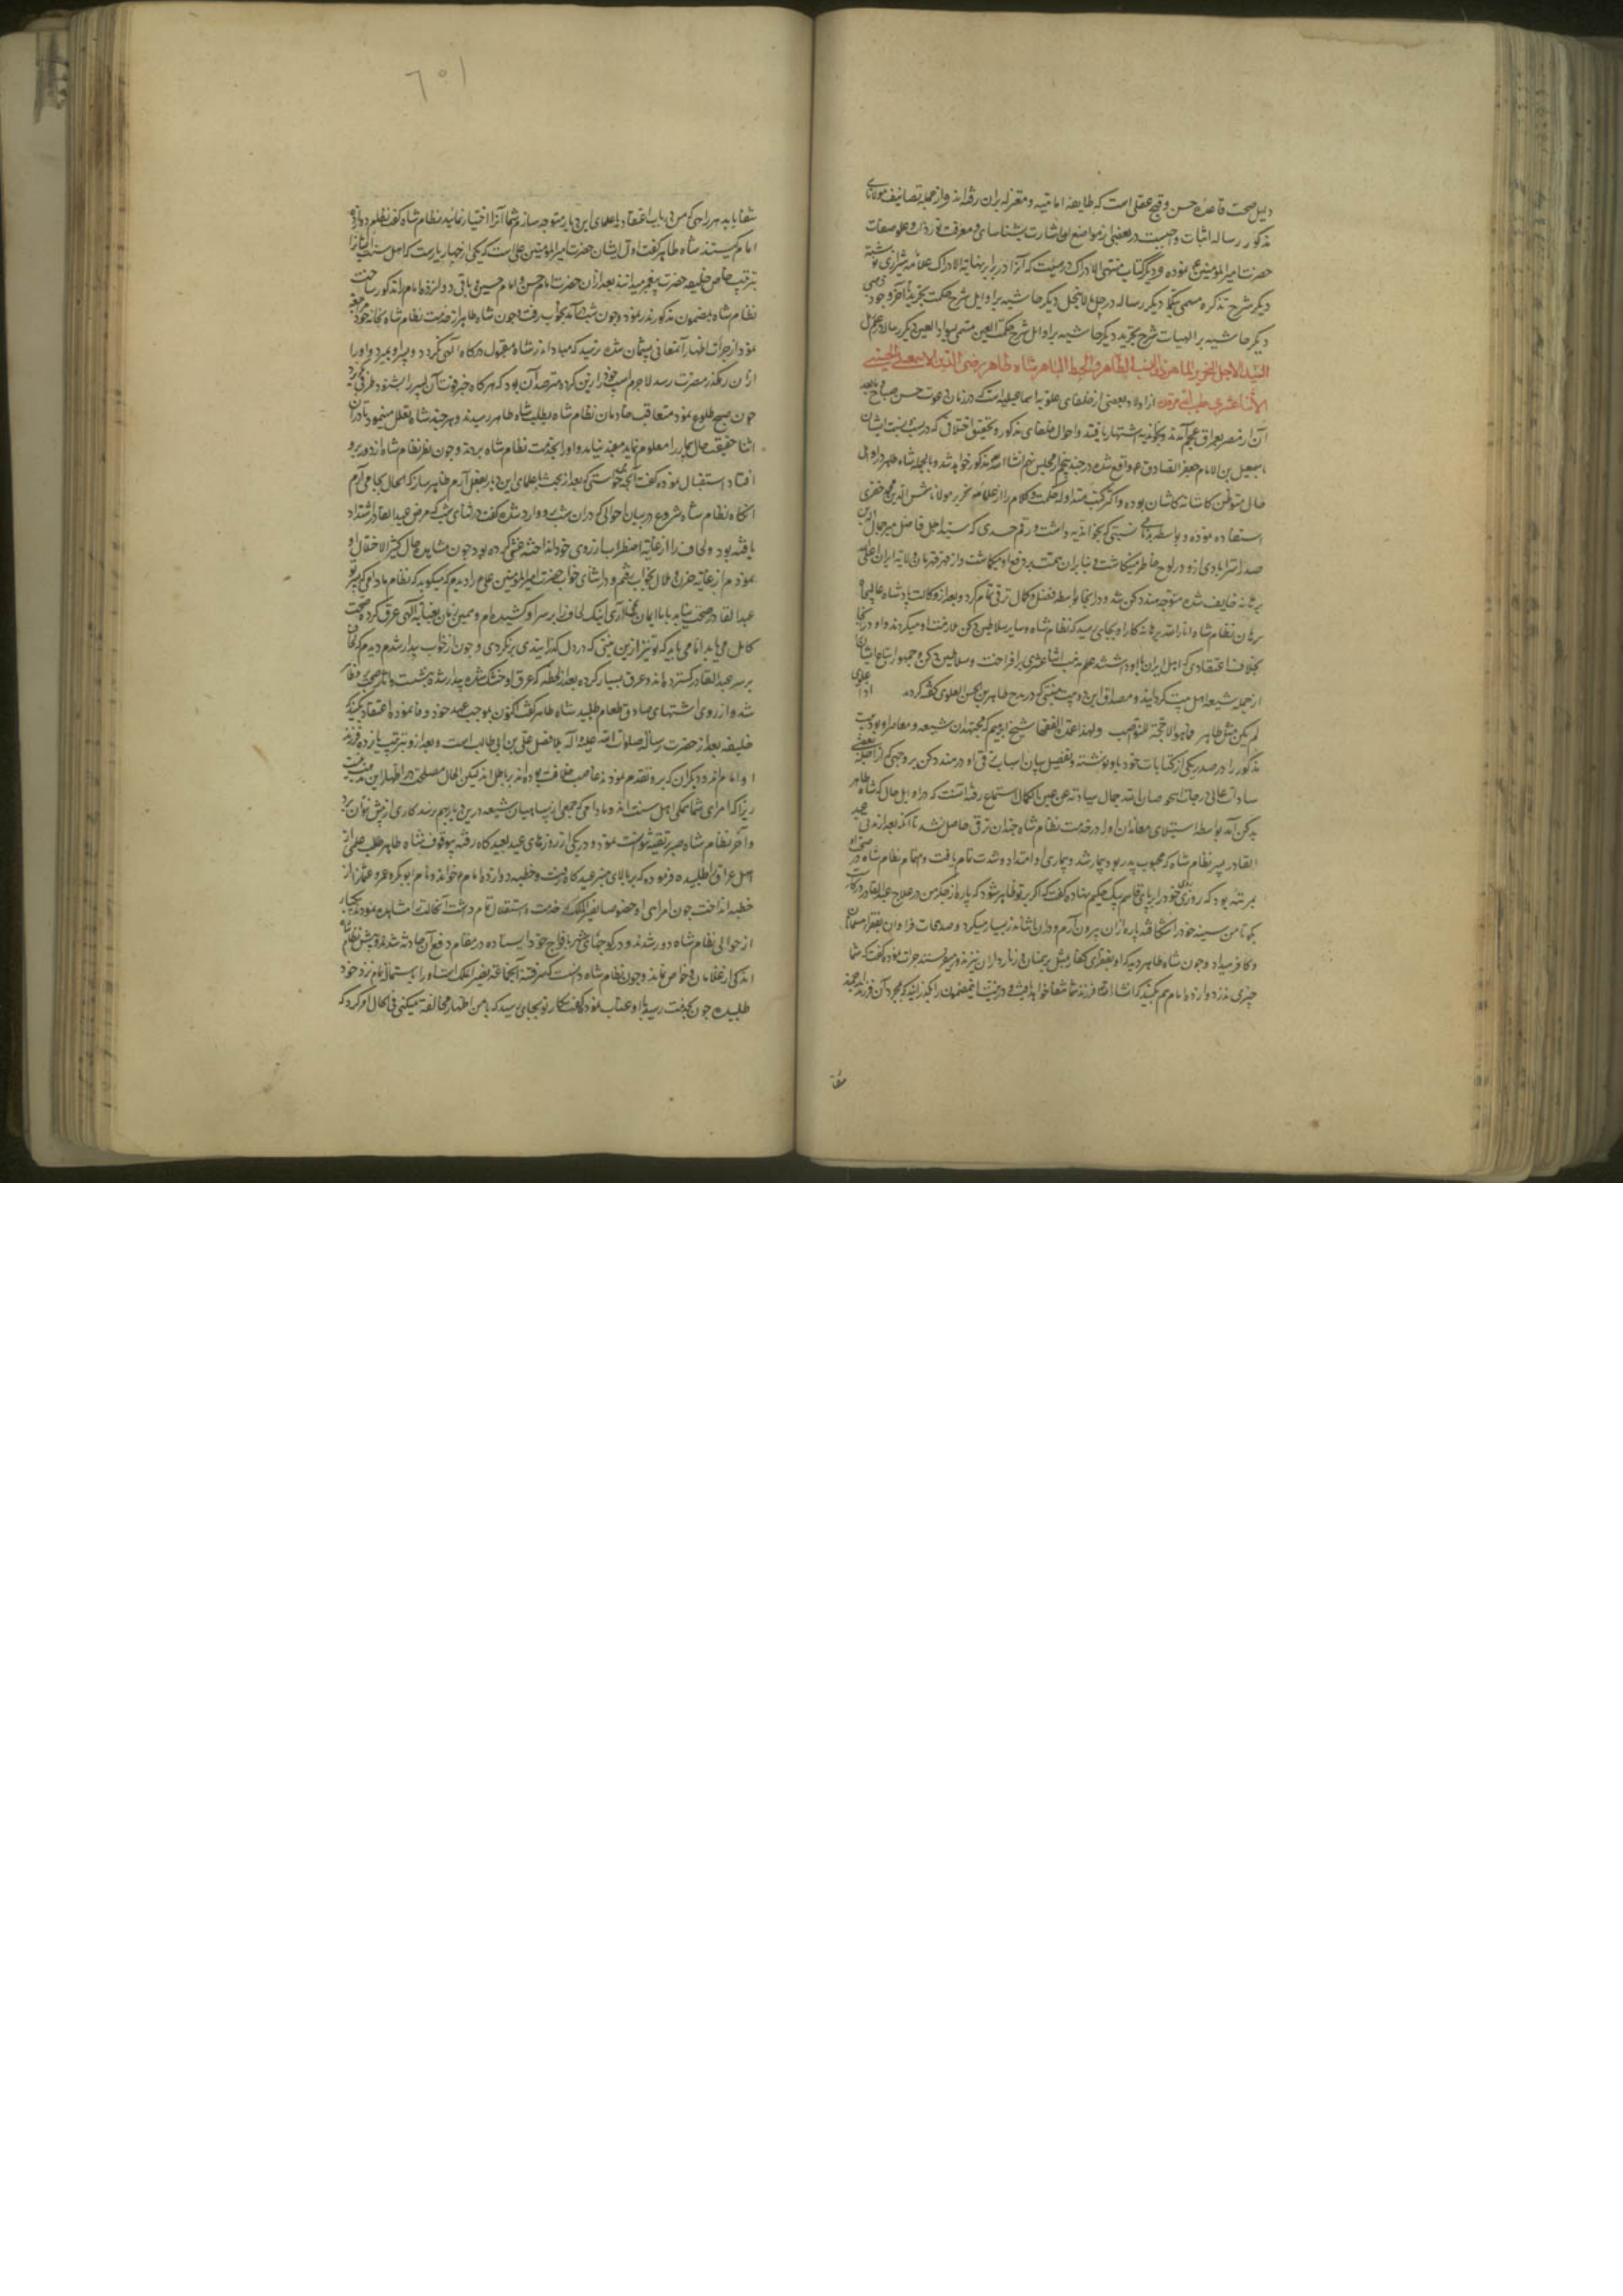 دلیل صحت قاعده حسن و قبح عقلی است که طایفه امامیه و معتزله بران رفته‌اند و از جمله تصانیف مولانای
مذکور رساله اثبات واجبست در بعضی از مواضع آن اشارت بشناسای و معرفت و علو صفات
حضرت امیرالمؤمنین نموده و دیگر کتاب منتهی الادراک در هیئت که آنرا در برابر نهایة الادراک علامه شیرازی نوشته
دیگر شرح تذکره مسمی دیگر رساله در حل مالاینحل دیگر حاشیه بر اوایل شرح حکمت
دیگر حاشیه بر الهیات شرح تجرید دیگر حاشیه بر اوایل شرح حکمة العین مسمی بسواد العین دیگر رساله در علم رمل
السید الاجل النحریر الماهر ذی النسب الطاهر والحسب الباهر شاه طاهر بن رضی الدین الاسمعیلی الحسینی
الاثناعشری طیب الله مرقده از اولاد بعضی از خلفای علویه اسماعیلیه است که در زمان دعوت حسن صباح و بعد
آن از مصر بعراق عجم آمدند و اشتهار یافتند و احوال خلفای مذکور و تحقیق اختلافی که در نسبت ایشان
باسمعیل بن الامام جعفر الصادق ع واقع شده در جند پنجم از مجلس انشاالله مذکور خواهد شد و بالجمله شاه طاهر در اوایل
حال متوطن کاشانه کاشان بوده و اکثر کتب متداوله حکمت و کلام را از علامه نحریر مولانا شمس الدین محمد خفری
استفاده نموده و بواسطه نسبتی که بخواندیه داشت و رقم حسدی که سید اجل فاضل میر جمال الدین
صدر استرابادی ازو در لوح خاطر مینگاشت و بنابران همت بر دفع او میگماشت و از قهرمان ولایه ایران
خایف شده متوجه هند دکن شد و در آنجا بواسطه فضل و کمال ترقی تمام کرد و بعد از وکالت پادشاه عالیجاه
برهان نظام شاه انار الله برهانه کار او بجای رسید که نظام شاه و سایر سلاطین دکن ملازمت او میکردند و او در آنجا
بخلاف اعتقادی که اهل ایران باو داشتند علم مذهب اثناعشری برافراخت و سلاطین دکن و جمهور اتباع ایشان
از جمله شیعه اهل بیت گردانید و مصداق این دو بیت متنبی که در مدح طاهر بن الحسن العلوی گفته گردید
علوی اذا
لم یکن مثل طاهر فما هو الا حجة للنواصب ولهذا عمدة الفقها شیخ ابرهیم که مجتهد شیعه و معاصر او بوده
مذکور را در صدر یکی از کتابات خود باو نوشته و تفصیل بیان اسباب ترقی او در هند دکن بروجهی که از بعضی اجله
سادات عالی درجات صان الله جمال سیادته عن عین الکمال استماع رفته آنست که در اوایل حال که شاه طاهر
بدکن آمد بواسطه استیلای معاندان او را در خدمت نظام شاه چندان ترقی حاصل نشد تا آنکه بعد از مدتی عبد
القادر پسر نظام شاه که محبوب پدر بود بیمار شد و بیماری او امتداد و شدت تمام یافت و اهتمام نظام شاه در صحت او
بمرتبه بود که روزی خود را برپای قاسم بیک حکیم نهاده گفت که اگر بر تو ظاهر شود که پاره از جگر من در علاج عبد القادر درکار
بگو تا من سینه خود را شکافته پاره از ان بیرون آرم و دران اثنا نذر بسیار میکرد و صدقات فراوان بفقرا مسلمان
و کافر میداد و چون شاه طاهر دید که او بفقرای کفار مثل برهمنان و زنارداران نیز نذر میفرستند جرات نموده گفت که شما
چیزی نذر دوازده امام هم بکنید که انشا الله فرزند شما شفا خواهد یافت که بمجرد آن فرزند ارجمند
شفا
۱۰۶
شفا یابد هر راهی که من در باب اعتقاد با علمای این دیار متوجه سازم شما آنرا اختیار نمائید نظام شاه گفت دوازده
امام کیستند شاه طاهر گفت اول ایشان حضرت امیرالمؤمنین علی است که یکی از چهار یارست که اهل سنت ایشانرا
بترتیب خاص خلیفه حضرت پیغمبر میدانند بعد ازان حضرت امام حسن و امام حسین و باقی دوازده امام را مذکور ساخت
نظام شاه بمضمون مذکور نذر نمود و چون شب درآمد بخواب رفت و چون شاه طاهر از خدمت نظام شاه بخانه خود مراجعه
نمود از جرات اظهار آنمعانی پشیمان شده ترسید که مبادا نذر شاه مقبول درگاه الهی نگردد و پسر او بمیرد و او را
ازان رهگذر مضرت رسد لاجرم اسب خود را زین کرده مترصد آن بود که هرگاه خبر فوت آن پسر را بشنود بطرفی بگریزد
چون صبح طلوع نمود متعاقب خادمان نظام شاه بطلب شاه طاهر رسیدند و هرچند شاه تعلل مینمود تا دران
اثنا حقیقت حال بیمار را معلوم نماید مفید نیامد و او را بخدمت نظام شاه بردند و چون نظر نظام شاه از دور برو
افتاد استقبال نموده گفت آنچه میخواستی که بعد از بحث با علمای این دیار بفعل آرم ظاهر ساز که الحال بجا می آرم
آنگاه نظام شاه شروع در بیان احوالی که دران شب برو وارد شده گفت در اثنای شب که مرض عبدالقادر اشتداد
یافته بود و لحاف را از غایة اضطراب از روی خود انداخته غش کرده بود چون مشاهده حال کثیر الاختلال او
نمودم از غایة حزن و ملال بخواب رفتم و در اثنای خواب حضرت امیرالمؤمنین علی را دیدم که میگوید که نظام مادامی که پسر تو
عبدالقادر صحت نیابد باما ایمان نمی‌آری اینک لحاف را بر سر او کشیده‌ام و همین زمان بعنایة الهی عرق کرده صحت
کامل می یابد اما می باید که تو نیز ازین نیتی که در دل گذرانیدی برنگردی و چون از خواب بیدار شدم دیدم که لحاف
بر سر عبدالقادر گسترده‌اند و عرق بسیار کرده بعد از لحظه که عرق او خشک شده بیدار شده بنشست و آثار صحت ظاهر
شد و از روی اشتهای صادق طعام طلبید شاه طاهر گفت اکنون بموجب عهد خود وفا نموده اعتقاد کنید که
خلیفه بعد از حضرت رسالة صلوات الله علیه و آله بلا فصل علی بن ابی طالب است و بعد از و بترتیب یازده فرزند
او امام‌اند و دیگران که برو تقدم نمودند غاصب خلافت بوده‌اند و باطل‌اند لیکن الحال مصلحت در اظهار این مذهب نیست
زیرا که امرای شما همگی اهل سنت‌اند و مادامی که جمعی از سپاهیان شیعه درین دیار بهم نرسند کاری از پیش نتوان برد
و آخر نظام شاه صبر بر تقیه نتوانست نمود و در یکی از روزهای عید بعیدگاه رفته بموقوف شاه طاهر طلب علمی از
اهل عراق طلبیده فرموده که بر بالای منبر عیدگاه رفت و خطبه دوازده امام خواند و نام ابوبکر و عمر و عثمان از
خطبه انداخت چون امرای او خصوصا نصیر الملک که خدمت و استقلال تمام داشت آنحالت را مشاهده نمودند یکبار
از حوالی نظام شاه دور شدند و در کوچهای شهر با افواج خود ایستاده در مقام دفع آن حادثه شدند و پیش نظام شاه
اندکی از غلامان خاص نماند و چون نظام شاه دانست که سر فتنه آنجماعة نصیر الملک است او را باستمالة تمام نزد خود
طلبید چون بخدمت رسید باو عتاب نمود که گفت کار تو بجای رسید که بامن اظهار مخالفت میکنی فی الحال امر کرد که